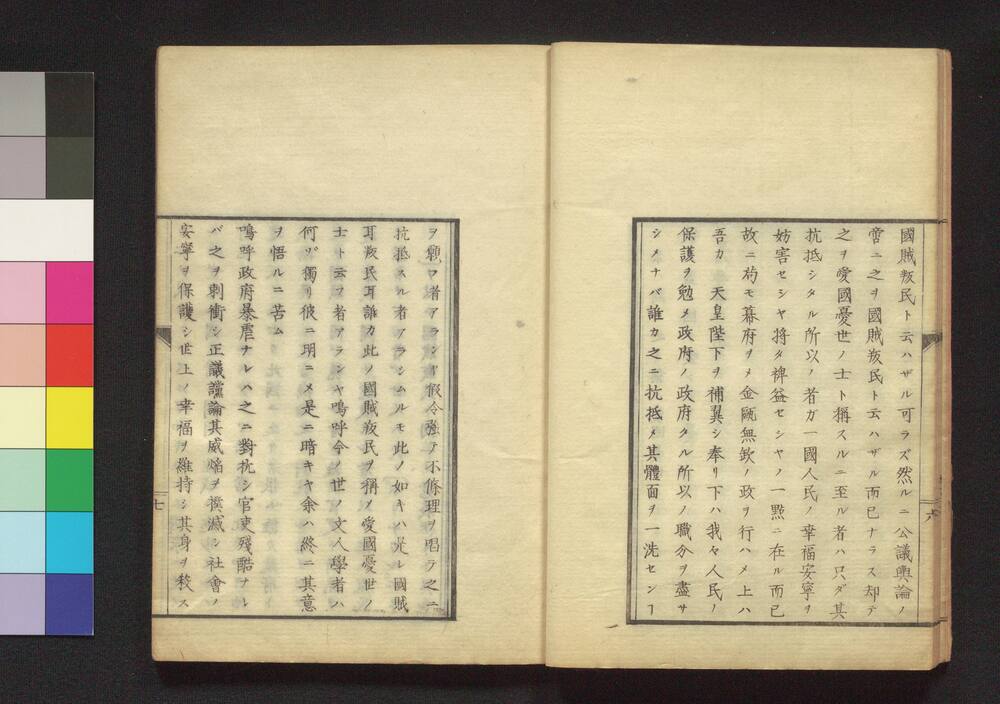 國賊叛民ト云ハザル可ラズ然ルニ公議輿論ノ
啻ニ之ヲ國賊叛民ト云ハザル而已ナラス却テ
之ヲ愛國憂世ノ士ト稱スルニ至ル者ハ只ダ其
抗抵シタル所以ノ者ガ一國人民ノ幸福安寧ヲ
妨害セシヤ将タ裨益セシヤノ一點ニ在ル而已
故ニ茍モ幕府ヲメ金甌無欠ノ政ヲ行ハメ上ハ
吾カ 天皇陛下ヲ補翼シ奉リ下ハ我々人民ノ
保護ヲ勉メ政府ノ政府タル所以ノ職分ヲ盡サ
シメナバ誰カ之ニ抗抵メ其體面ヲ一洗センヿ
六
ヲ願フ者アランヤ假令強テ不條理ヲ唱ヲ之ニ
抗抵スル者アラシムルモ此ノ如キハ光レ國賊
耳叛民耳誰カ此ノ國賊叛民ヲ稱ノ愛國憂世ノ
士ト云フ者アランヤ嗚呼今ノ世ノ文人學者ハ
何ゾ獨リ彼ニ明ニメ是ニ暗キヤ余ハ終ニ其意
ヲ悟ルニ苦ム
嗚呼政府暴虐ナルハ之ニ對抗シ官吏残酷ナレ
バ之ヲ刺衝シ正議讜論其威焔ヲ撲滅シ社會ノ
安寧ヲ保護シ世上ノ幸福ヲ維持シ其身ヲ殺ス
七